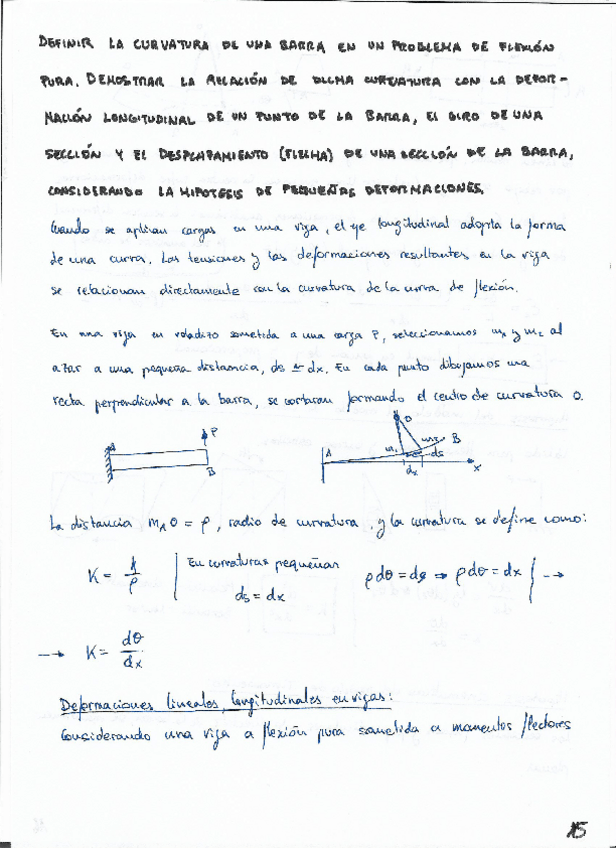 DEFINIR LA CURVATURA DE UNA BARRA EN UN PROBLEMA DE FLEXIÓN
PURA. DEMOSTRAR LA RELACIÓN DE DICHA CURVATURA CON LA DEFOR-
MACIÓN LONGITUDINAL DE UN PUNTO DE LA BARRA, EL GIRO DE UNA
SECCIÓN Y EL DESPLAZAMIENTO (FLECHA) DE UNA SECCIÓN DE LA BARRA,
CONSIDERANDO LA HIPOTESIS DE PEQUEÑAS DEFORMACIONES.
Cuando se aplican cargas en una viga, el eje longitudinal adopta la forma
de una curva. Las tensiones y las deformaciones resultantes en la viga
se relacionan directamente con la curvatura de la curva de flexión.
En una viga en voladizo sometida a una carga P, seleccionamos m₁ y m₂ al
azar a una pequeña distancia, ds ≃ dx. En cada punto dibujamos una
recta perpendicular a la barra, se cortaran formando el centro de curvatura O.
A P B
A m₁ m₂ O B ds dx x
La distancia m₁O = ρ, radio de curvatura, y la curvatura se define como:
K = 1/ρ | En curvaturas pequeñas ds = dx ρdθ = ds ⇒ ρdθ = dx | →
→ K = dθ/dx
Deformaciones lineales, longitudinales en vigas:
Considerando una viga a flexión pura sometida a momentos flectores
15